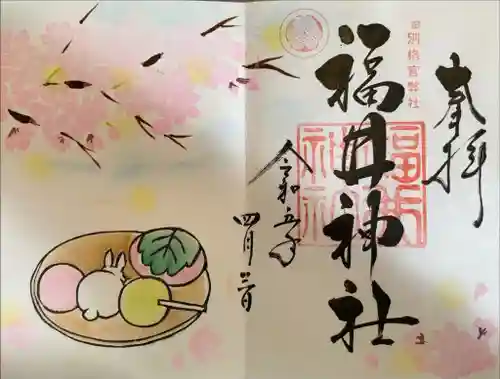 奉拝
旧別格官幣社
福井神社
福井神社
令和五年
四月廿三日